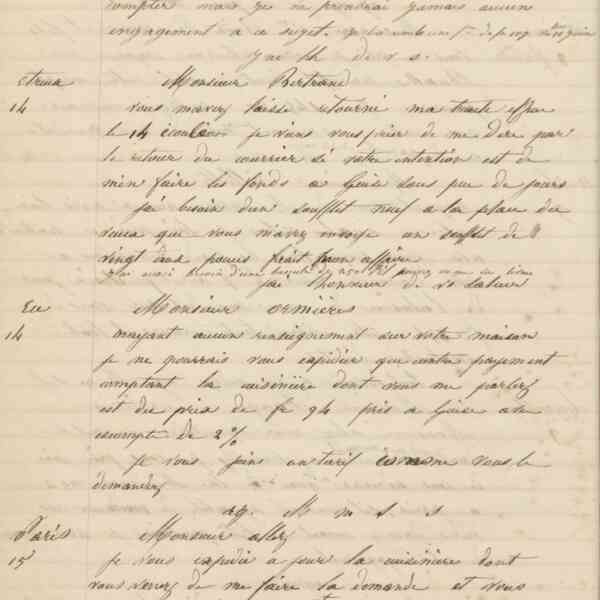 compter mais je ne prendrai jamais aucun
engagement a ce sujet.
jai lh de v s.
etreux Monsieur Bertrand
14 vous mavez laissé retourné ma traite
le 14 écoulé je viens vous prier de me dire par
le retour du courrier si votre intention est de
men faire les fonds a Guise sous peu de jours
jai besoin dun soufflet neuf a la place du
vieux que vous mavez envoyé un soufflet de
vingt deux pouces ferait mon affaire
jai aussi besoin d'une
jai lhonneur de vs saluer
Eu Monsieur ormières
14 nayant aucun renseignement sur votre maison
je ne pourrais vous expédier que contre payement
comptant la cuisinière dont vous me parlez
est du prix de fr 94 pris a Guise
escompte de 2 %
je vous joins un tarif comme vous le
demandez
ag. M m s. s
Paris Monsieur allez
15 je vous expédie a jour la cuisinière dont
vous venez de me faire la demande et vous